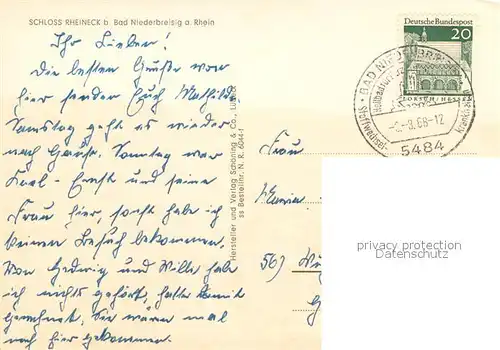 SCHLOSS RHEINECK b. Bad Niederbreisig a. Rhein
Ihr Lieben!
Die besten Grüße von
hier senden Euch Mathilde
Samstag geht es wieder
nach Hause. Sonntag war
Karl-Ernst und seine
Frau hier, sonst habe ich
keinen Besuch bekommen,
Von Hedwig und Willi habe
ich nichts gehört, hatte damit
gerechnet, Sie wären mal
nach hier gekommen.
Hersteller und Verlag Schöning & Co., Lübeck
ss Bestellnr. N. R. 6044-1
Deutsche Bundespost
20
LORSCH/HESSEN
BAD NIEDERBREISIG
-8.68-12
5484
Frau
Maria
567
privacy protection
Datenschutz